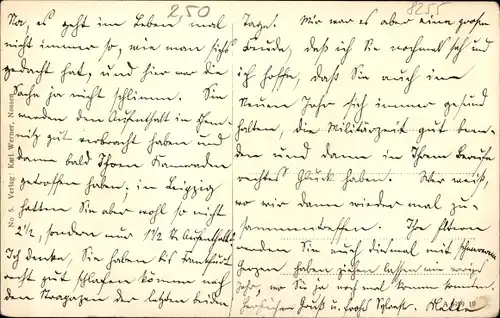 2,50
8255
Na, es geht im Leben mal
nicht immer so, wie man sichs
gedacht hat, und hier war die
Sache ja nicht schlimm. Sie
werden den Aufenthalt in Chem-
nitz gut verbracht haben und
dann bald Ihren Kameraden
getroffen haben; in Leipzig
hatten Sie aber wohl so nicht
2½, sondern nur 1½ St. Aufenthalt.
Ich denke, Sie haben bis Frankfurt
recht gut schlafen können nach
den Strapazen der letzten beiden
Tage. Mir war es aber eine große
Freude, daß ich Sie nochmal sah und
ich hoffe, daß Sie auch im
Neuen Jahr sich immer gesund
halten, die Militärzeit gut been-
den und dann in Ihrem Berufe
rechtes Glück haben. Wer weiß,
wo wir dann wieder mal zu-
sammentreffen. Ihre Eltern
werden Sie auch diesmal mit schwerem
Herzen haben ziehen lassen wie voriges
Jahr, wo Sie ja noch mal kommen konnten.
Herzlichen Gruß u. frohs
No 5. Verlag: Karl Werner, Nossen
10